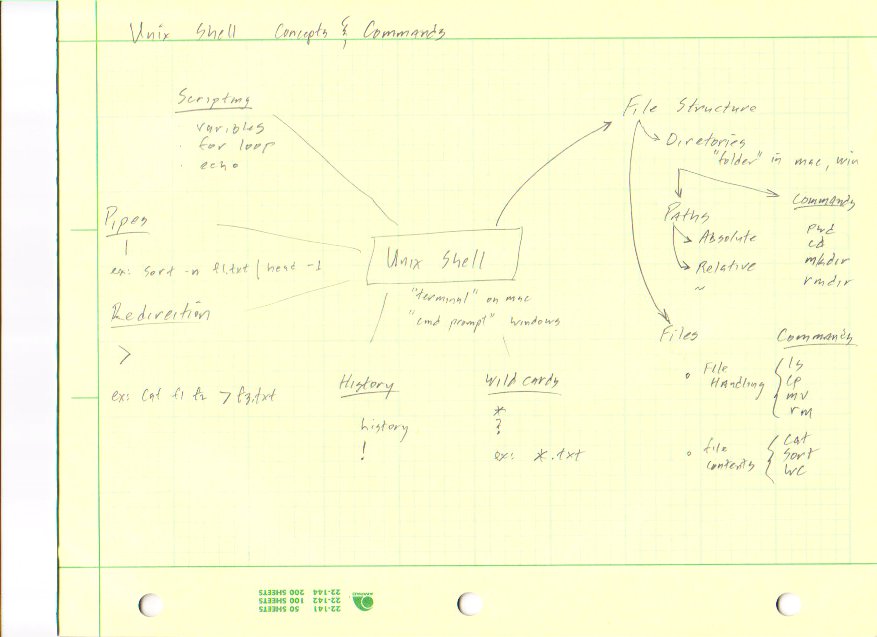 Unix Shell Concepts & Commands
Scripting
variables
· for loop
· echo
Pipes
|
ex: sort -n f1.txt | head -1
Redirection
>
ex: cat f1 f2 > f3.txt
Unix Shell
"terminal" on mac
"cmd prompt" windows
History
history
!
Wild cards
*
?
ex: *.txt
File Structure
Diretories
"folder" in mac, win
Paths
Absolute
Relative
~
Commands
pwd
cd
mkdir
rmdir
Files
Commands
File Handling
ls
cp
mv
rm
file contents
cat
sort
wc
22-141 50 SHEETS
22-142 100 SHEETS
22-144 200 SHEETS